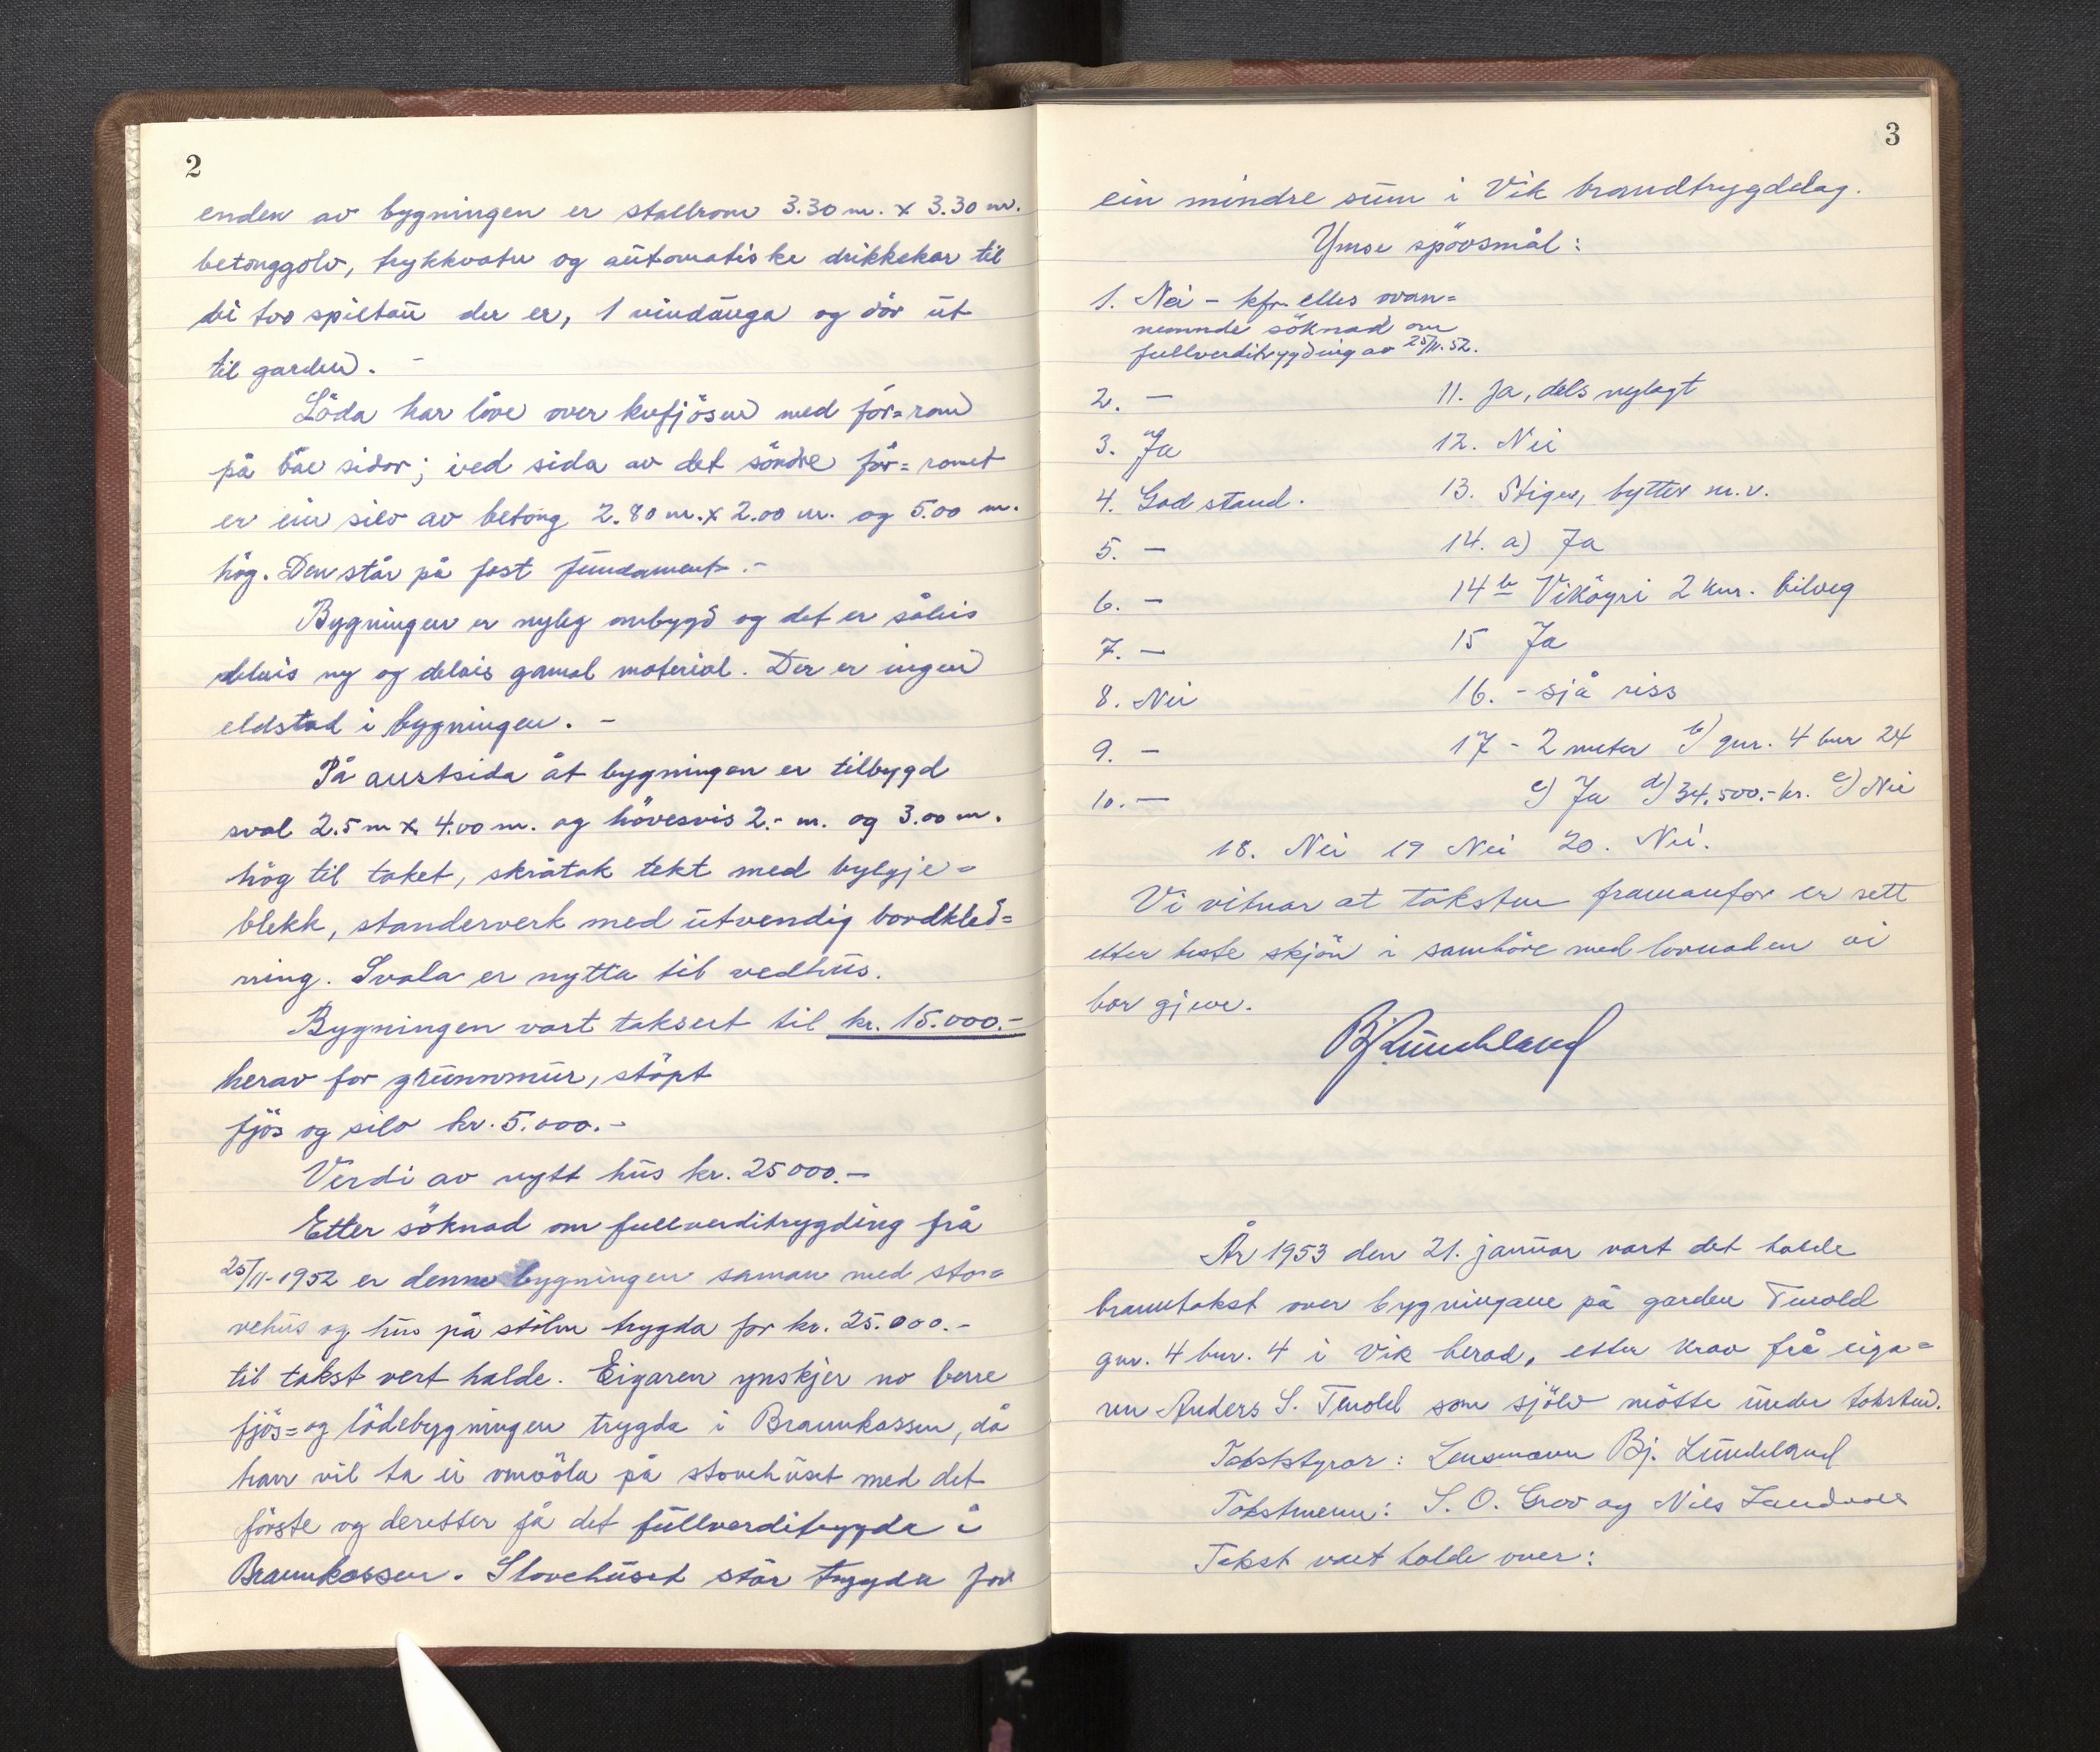 2
enden av bygningen er stallrom 3.30 m. x 3.30 m.
betonggolv, trykkvatn og automatiske drikkekar til
dei tvo spiltau der er, 1 vindauga og dør ut
til garden. -
Löda har låve over kufjösen med fór=rom
på båe sidor; ved sida av det söndre fór=romet
er ein silo av betong 2.80 m. x 2.00 m. og 5.00 m.
hög. Den står på fast fundament. -
Bygningen er nyleg ombygd og det er såleis
delvis ny og delvis gamal material. Der er ingen
eldstad i bygningen. -
På austsida åt bygningen er tilbygd
sval 2.5 m x 4.00 m. og hövesvis 2.- m. og 3.00 m.
hög til taket, skråtak tekt med bylgje=
blekk, standerverk med utvendig bordkled=
ning. Svala er nytta til vedhus.
Bygningen vart taksert til kr. 15.000.-
herav for grunnmur, stöpt
fjös og silo kr. 5.000.-
Verdi av nytt hus kr. 25000.-
Etter söknad om fullverditrygding frå
25/11-1952 er denne bygningen saman med sto=
vehus og hus på stölen trygda for kr. 25.000.-
til takst vert halde. Eigaren ynskjer no berre
fjös= og lödebygningen trygda i Brannkassen, då
han vil ta ei umvöla på stovehuset med det
förste og deretter få det fullverditrygda i
Brannkassen. Stovehuset står trygda for
3
ein mindre sum i Vik brandtrygdelag.
Ymse spörsmål:
1. Nei - kfr. elles ovan=
nemnde söknad om
fullverditrygding av 25/11.52.
2. - 11. Ja, dels nylagt
3. Ja 12. Nei
4. God stand. 13. Stiger, bytter m.v.
5. - 14. a) Ja
6. - 14 b Vikøyri 2 km. bilveg
7. - 15 Ja
8. Nei 16. - sjå riss
9. - 17 - 2 meter b) gnr. 4 bnr 24
10. - c) Ja d) 34.500.- kr. e) Nei
18. Nei 19 Nei 20. Nei.
Vi vitnar at taksten framanfor er sett
etter beste skjön i samhöve med lovnaden vi
har gjeve.
Bj Lundeland
År 1953 den 21. januar vart det halde
branntakst over bygningane på garden Tenold
gnr. 4 bnr. 4 i Vik herad, etter krav frå eiga=
ren Anders S. Tenold som sjölv mötte under taksten.
Takststyrar: Lensmann Bj. Lundeland
Takstmenn: S. O. Grov og Nils
Takst vart halde over: